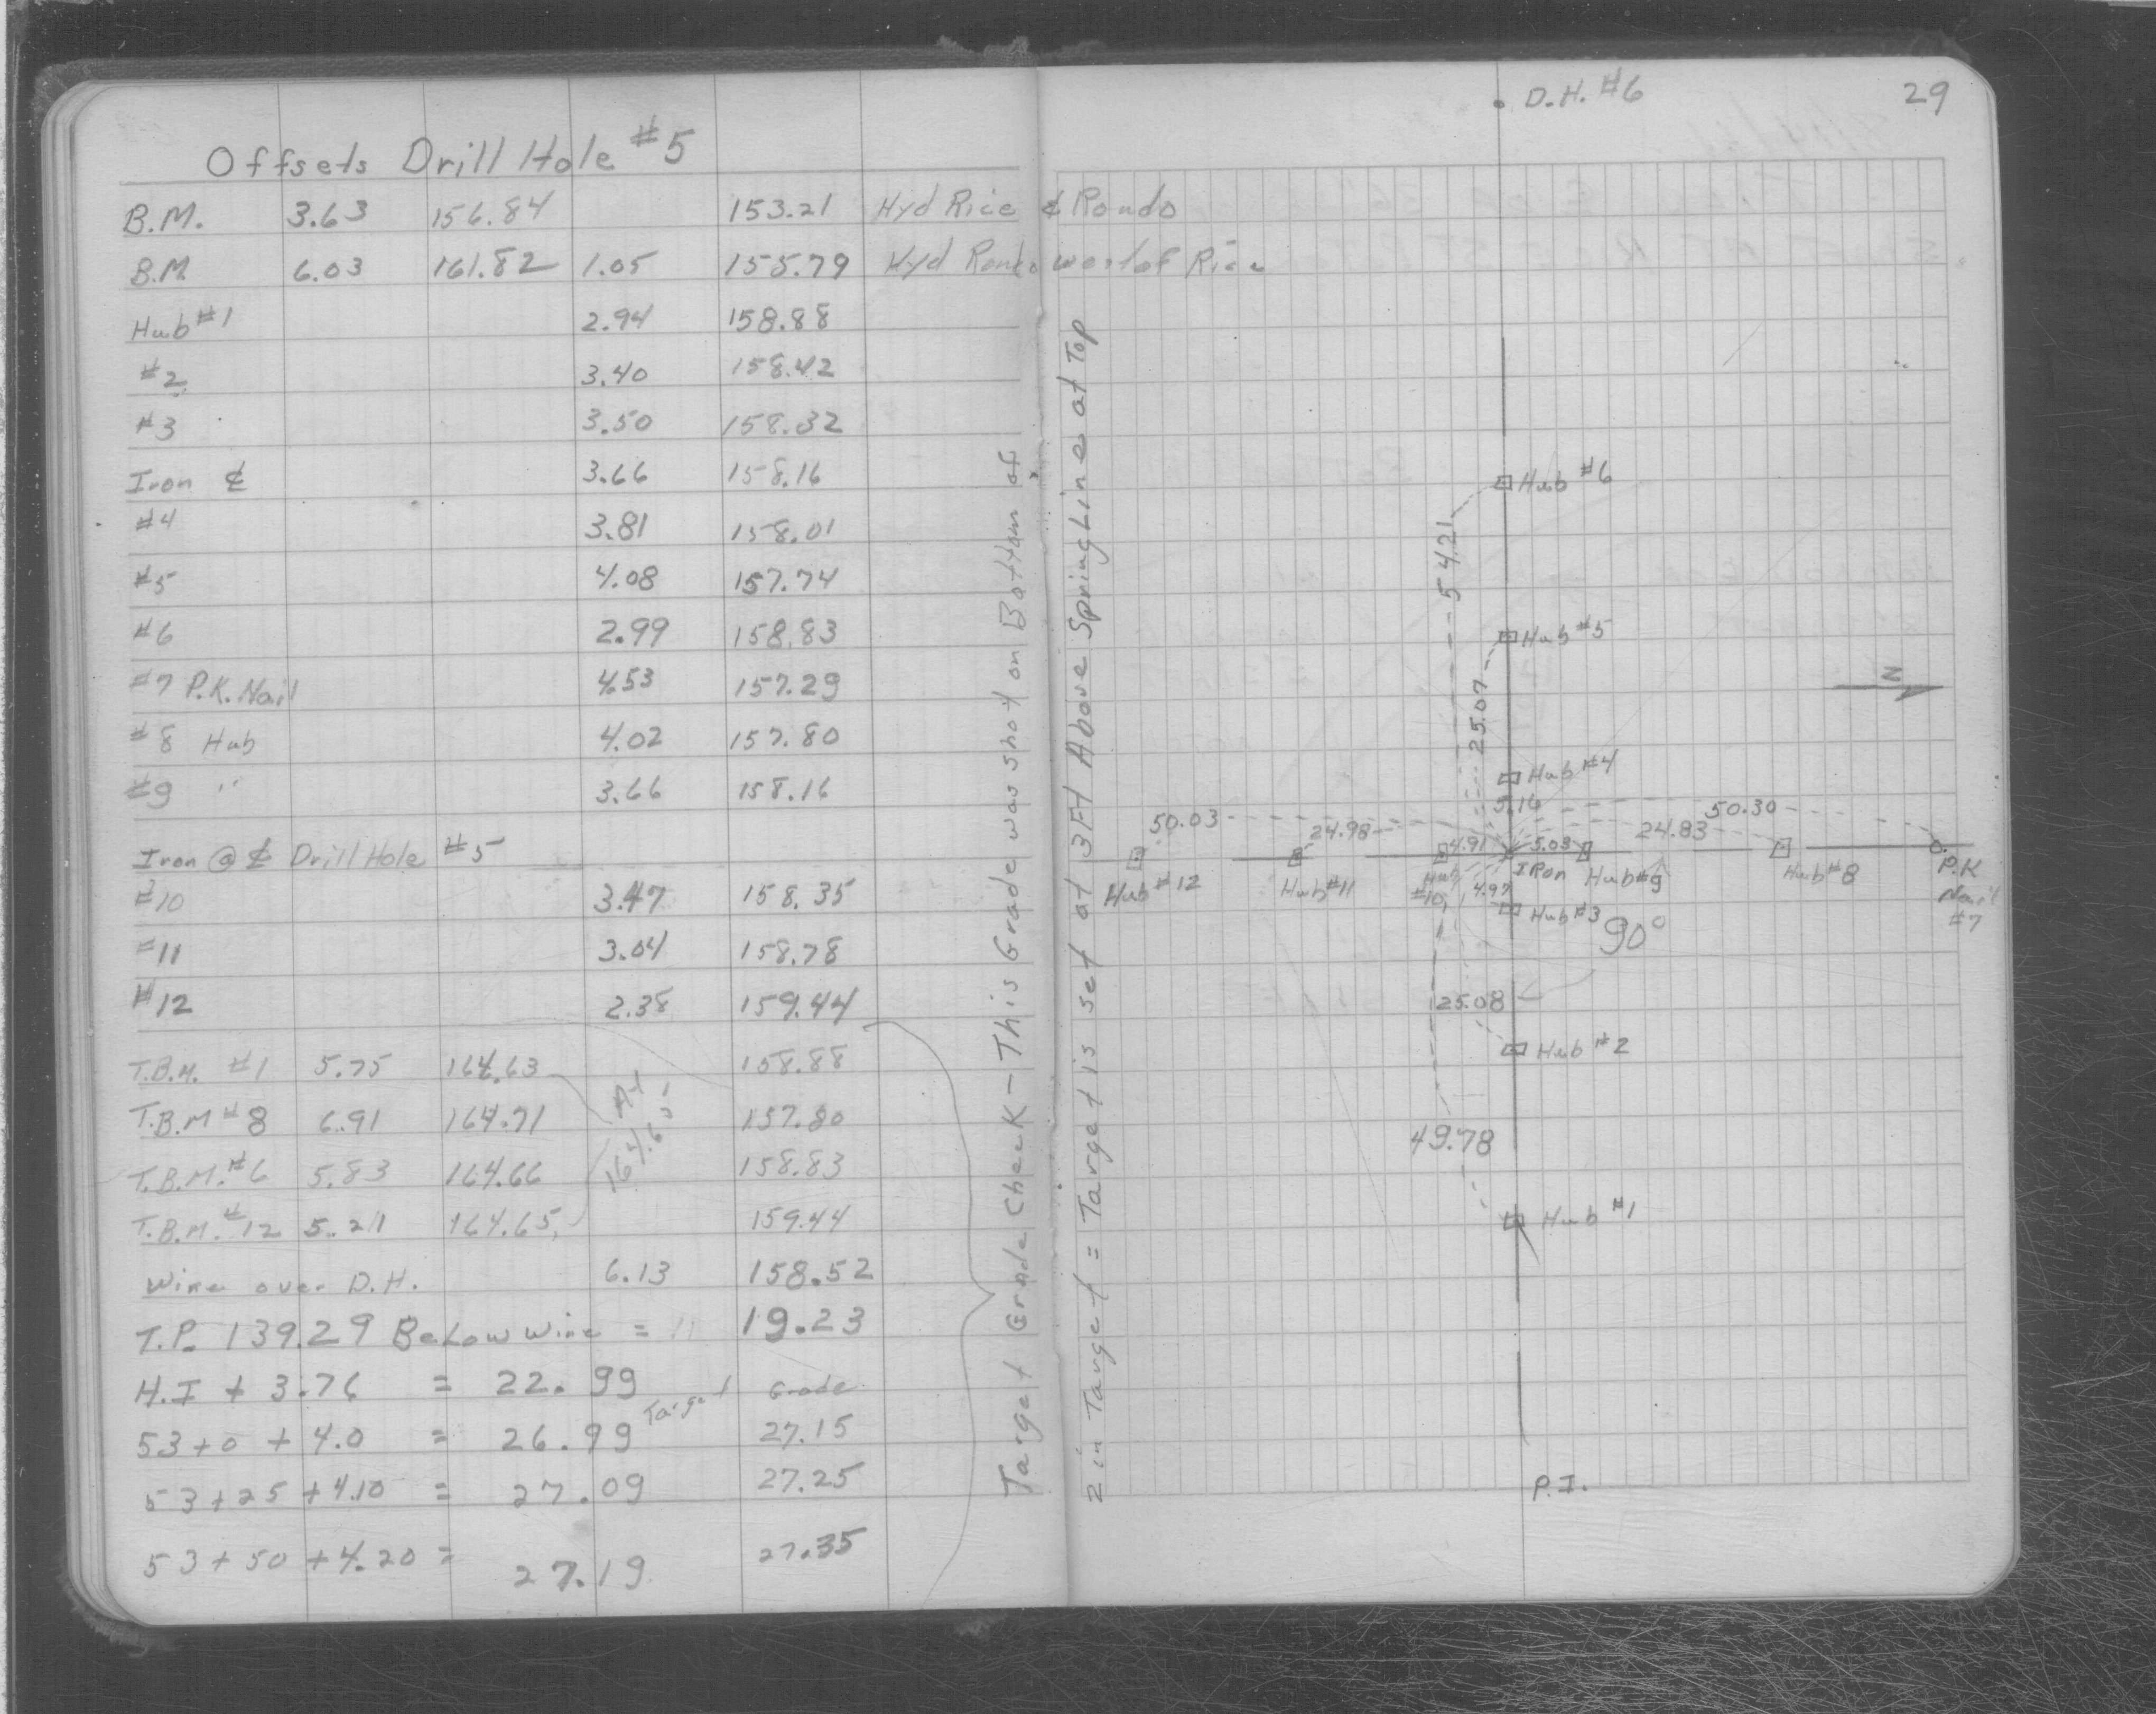 Offsets Drill Hole #5
B.M. 3.63 156.84 153.21 Hyd Rice & Rondo
B.M. 6.03 161.82 1.05 155.79 Hyd Rondo west of Rice
Hub #1 2.94 158.88
#2 3.40 158.42
#3 3.50 158.32
Iron ℄ 3.66 158.16
#4 3.81 158.01
#5 4.08 157.74
#6 2.99 158.83
#7 P.K. Nail 4.53 157.29
#8 Hub 4.02 157.80
#9 " 3.66 158.16
Iron @ ℄ Drill Hole #5
#10 3.47 158.35
#11 3.04 158.78
#12 2.38 159.44
T.B.M. #1 5.75 164.63 158.88
T.B.M #8 6.91 164.71 157.80
T.B.M. #6 5.83 164.66 158.83
T.B.M. #12 5.21 164.65 159.44
164.65
Wire over D.H. 6.13 158.52
T.P. 139.29 Below wire = 19.23
H.I + 3.76 = 22.99 Target Grade
53+0 + 4.0 = 26.99 27.15
53+25 +4.10 = 27.09 27.25
53+50 +4.20 = 27.19 27.35
Target Grade Check - This Grade was shot on Bottom of
2 in Target = Target is set at 3Ft Above SpringLine at Top
29
D.H. #6
Hub #6
54.21
Hub #5
25.07
N
Hub #4
5.16
50.03 24.98 4.91 5.03 24.83 50.30
Hub #12 Hub #11 Hub #10 IRon Hub #9 Hub #8 P.K Nail #7
4.97 Hub #3
90°
25.08
Hub #2
49.78
Hub #1
P.I.